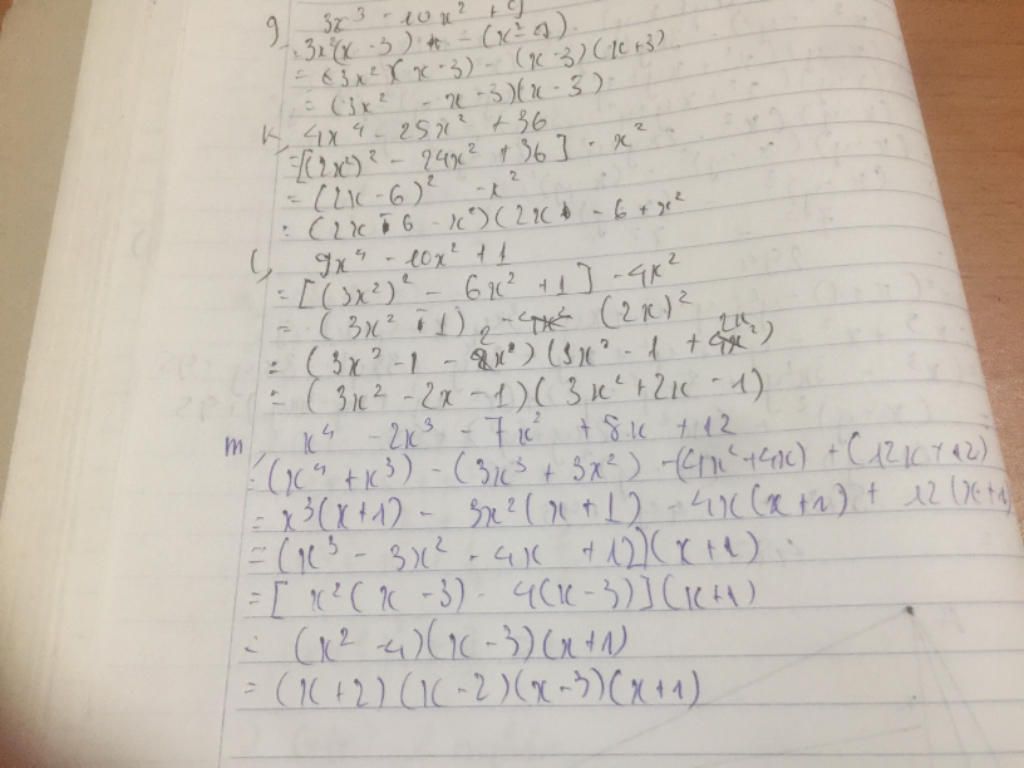 g, 3x³ - 10x² + 9
= 3x²(x - 3) - (x² - 9)
= (3x²)(x - 3) - (x - 3)(x + 3)
= (3x² - x - 3)(x - 3)
k, 4x⁴ - 25x² + 36
= [(2x²)² - 24x² + 36] - x²
= (2x - 6)² - x²
= (2x - 6 - x²)(2x - 6 + x²
l, 9x⁴ - 10x² + 1
= [(3x²)² - 6x² + 1] - 4x²
= (3x² - 1)² - (2x)²
= (3x² - 1 - 2x²)(3x² - 1 + 2x)
= (3x² - 2x - 1)(3x² + 2x - 1)
m, x⁴ - 2x³ - 7x² + 8x + 12
= (x⁴ + x³) - (3x³ + 3x²) - (4x² + 4x) + (12x + 12)
= x³(x + 1) - 3x²(x + 1) - 4x(x + 1) + 12(x + 1
= (x³ - 3x² - 4x + 12)(x + 1)
= [x²(x - 3) - 4(x - 3)](x + 1)
= (x² - 4)(x - 3)(x + 1)
= (x + 2)(x - 2)(x - 3)(x + 1)